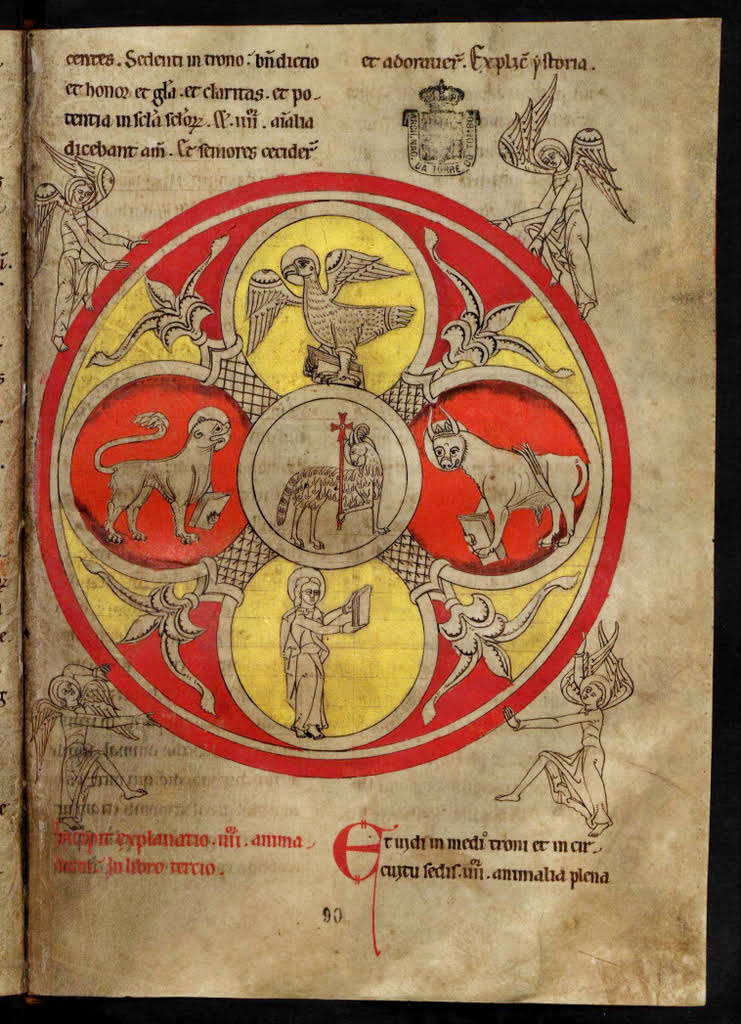 centes. Sedenti in trono: bn̄dictio
et honor et gl̄a. et claritas. et po-
tentia in sc̄la sc̄lor̄. Et. iiii. aīalia
dicebant am̄. Et seniores cecider̄
et adorauer̄. Explic̄ ystoria.
ARCH. NAC. DA TORRE DO TOMBO
Incipit explanatio. iiiior. anima
In libro tercio.
Et uidi in medio troni et in cir-
cuytu sedis. iiiior. animalia plena
90